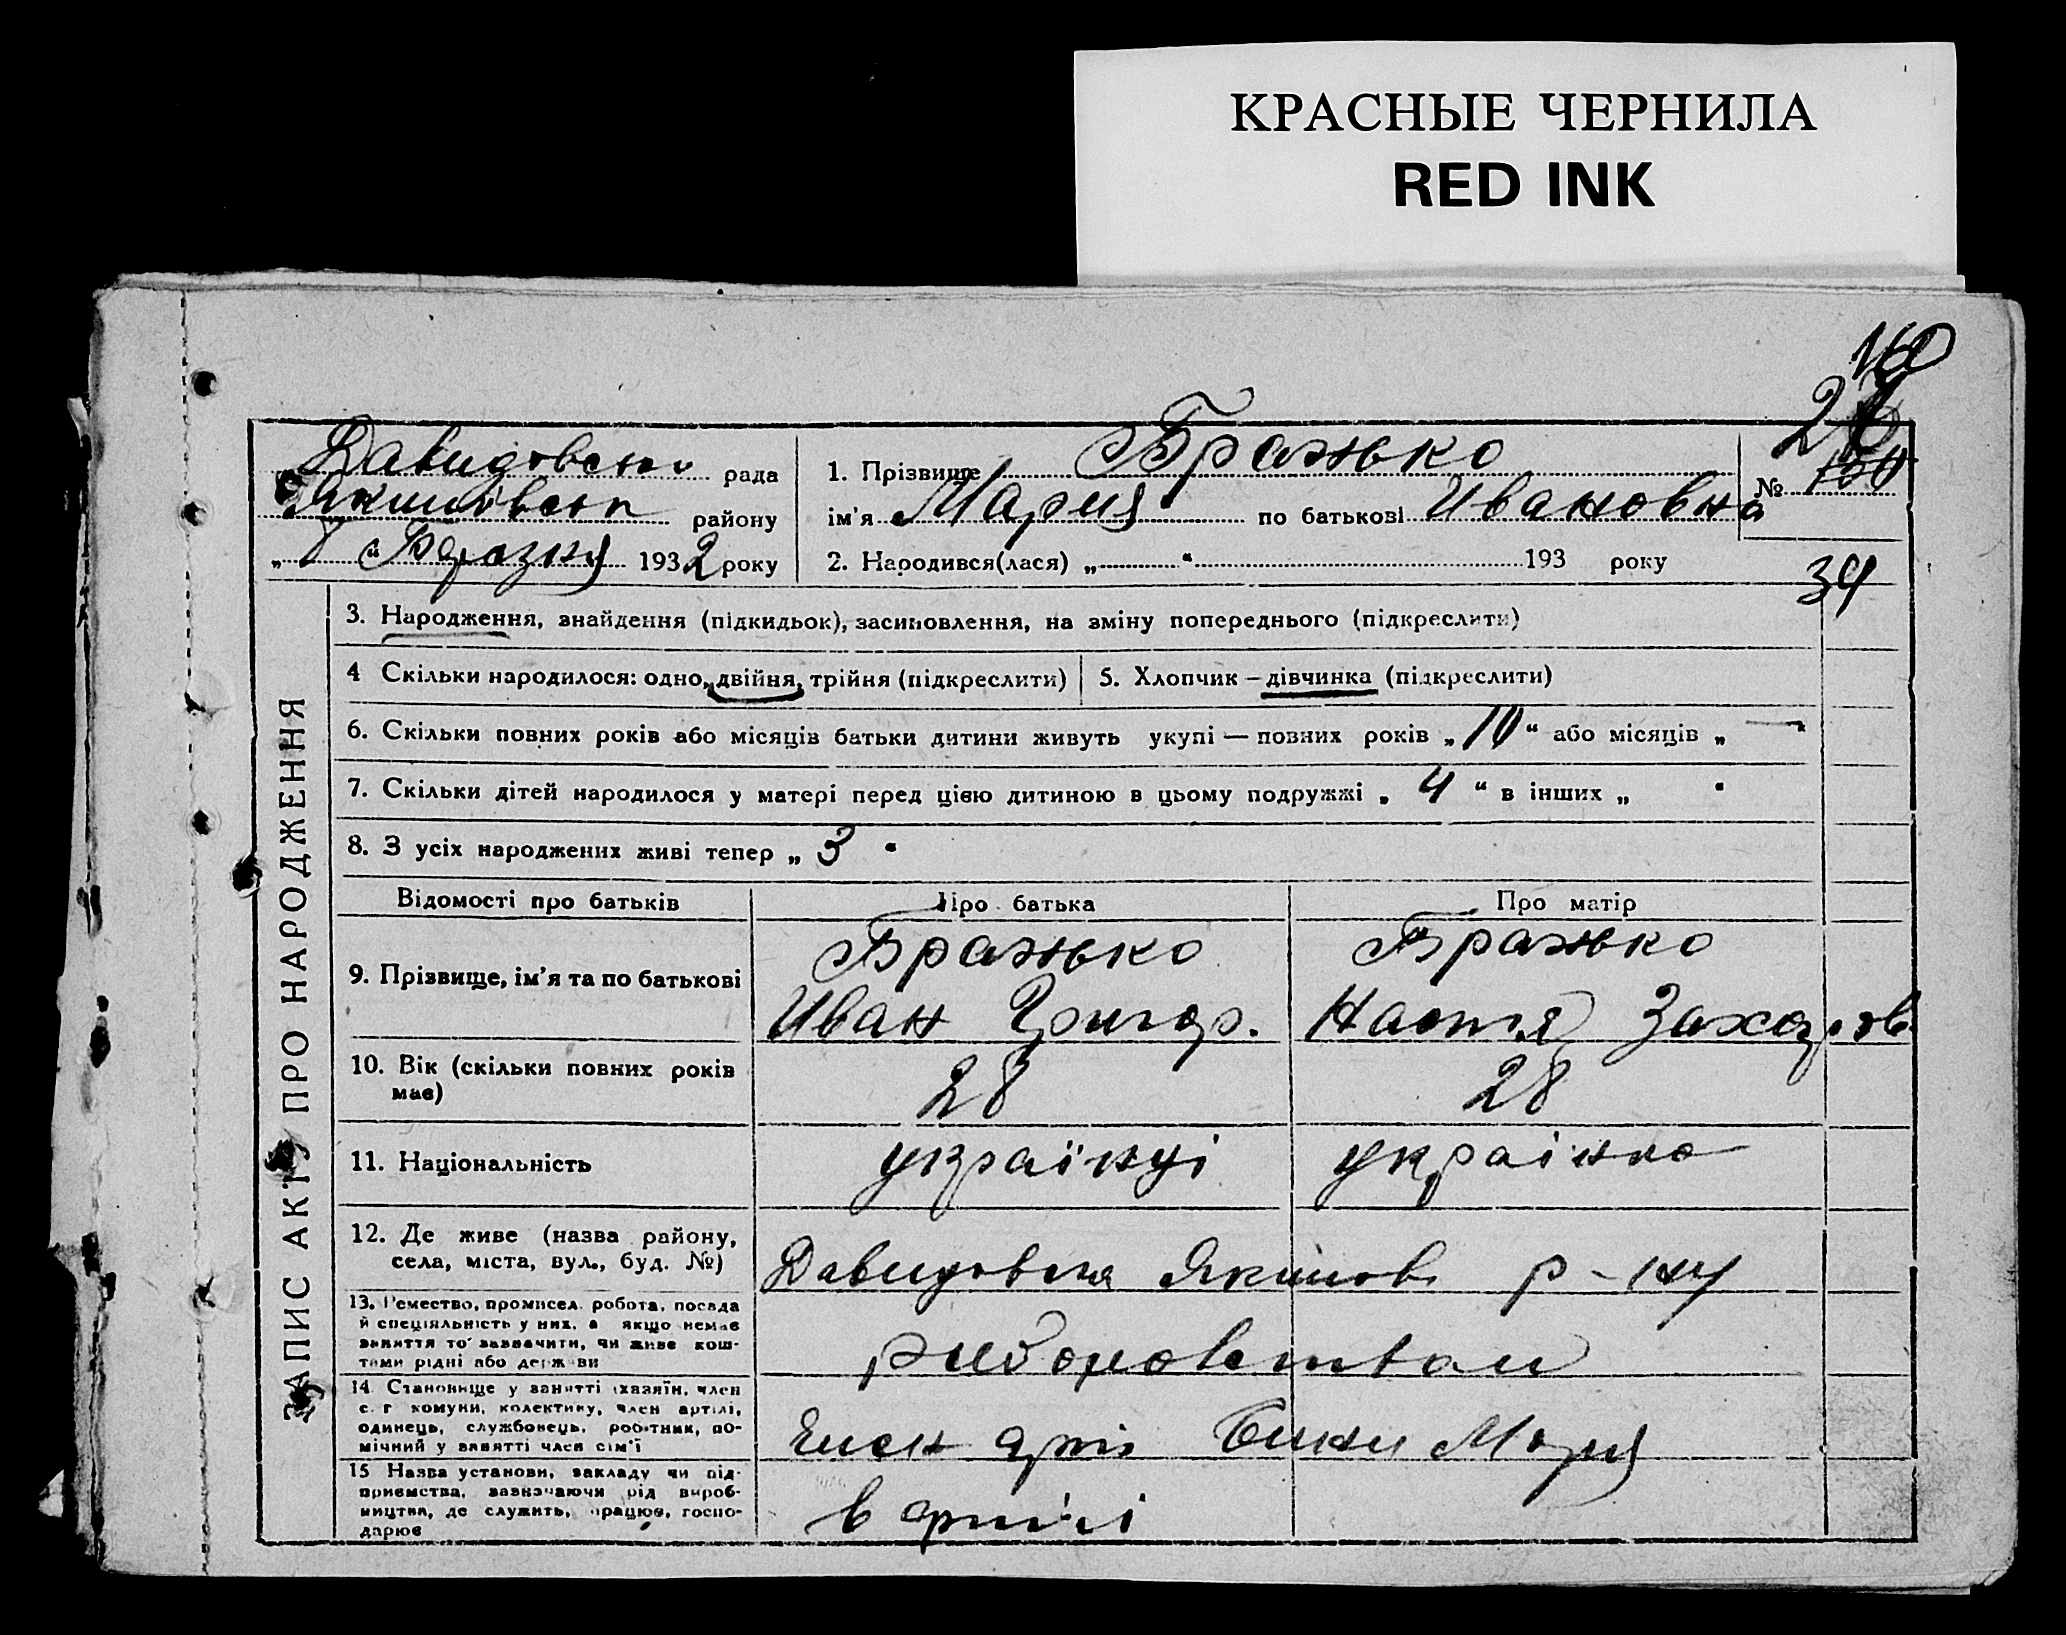 КРАСНЫЕ ЧЕРНИЛА
RED INK
160
34
Давидовська рада
Якимівськ району
„ 7 “ Березня 1932 року
1. Прізвище Бражько
ім'я Мария по батькові Ивановна
№
2. Народився(лася) „ “ 193 року
ЗАПИС АКТУ ПРО НАРОДЖЕННЯ
3. Народження, знайдення (підкидьок), засиновлення, на зміну попереднього (підкреслити)
4 Скільки народилося: одно, двійня, трійня (підкреслити)
5. Хлопчик – дівчинка (підкреслити)
6. Скільки повних років або місяців батьки дитини живуть укупі — повних років „ 10 “ або місяців „ — “
7. Скільки дітей народилося у матері перед цією дитиною в цьому подружжі „ 4 “ в інших „ “
8. З усіх народжених живі тепер „ 3 “
Відомості про батьків Про батька Про матір
9. Прізвище, ім'я та по батькові
Бражько
Иван Григор.
Бражько
Настя Захаров
10. Вік (скільки повних років має)
28 28
11. Національність
українці українка
12. Де живе (назва району, села, міста, вул., буд. №)
Давидовка Якимов р-ну
13. Ремество, промисел, робота, посада й спеціяльність у них, а якщо немає заняття то зазначити, чи живе коштами рідні або держави
14. Становище у занятті (хазяїн, член с. г комуни, колективу, член артілі, одинець, службовець, робітник, помічний у занятті член сім'ї
15 Назва установи, закладу чи підприємства, зазначаючи рід виробництва, де служить, працює, господарює
в артілі